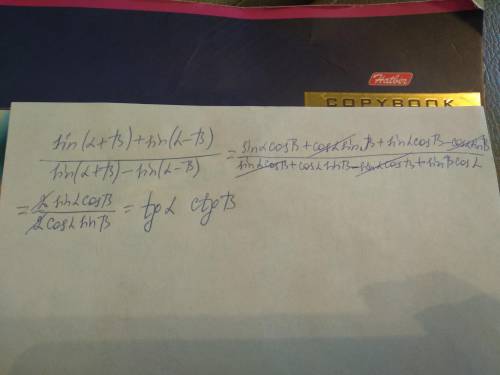 Hatber
COPYBOOK
sin(α+β)+sin(α-β) / sin(α+β)-sin(α-β) = sinαcosβ+cosαsinβ+sinαcosβ-cosαsinβ / sinαcosβ+cosαsinβ-sinαcosβ+sinβcosα
= 2sinαcosβ / 2cosαsinβ = tgα ctgβ